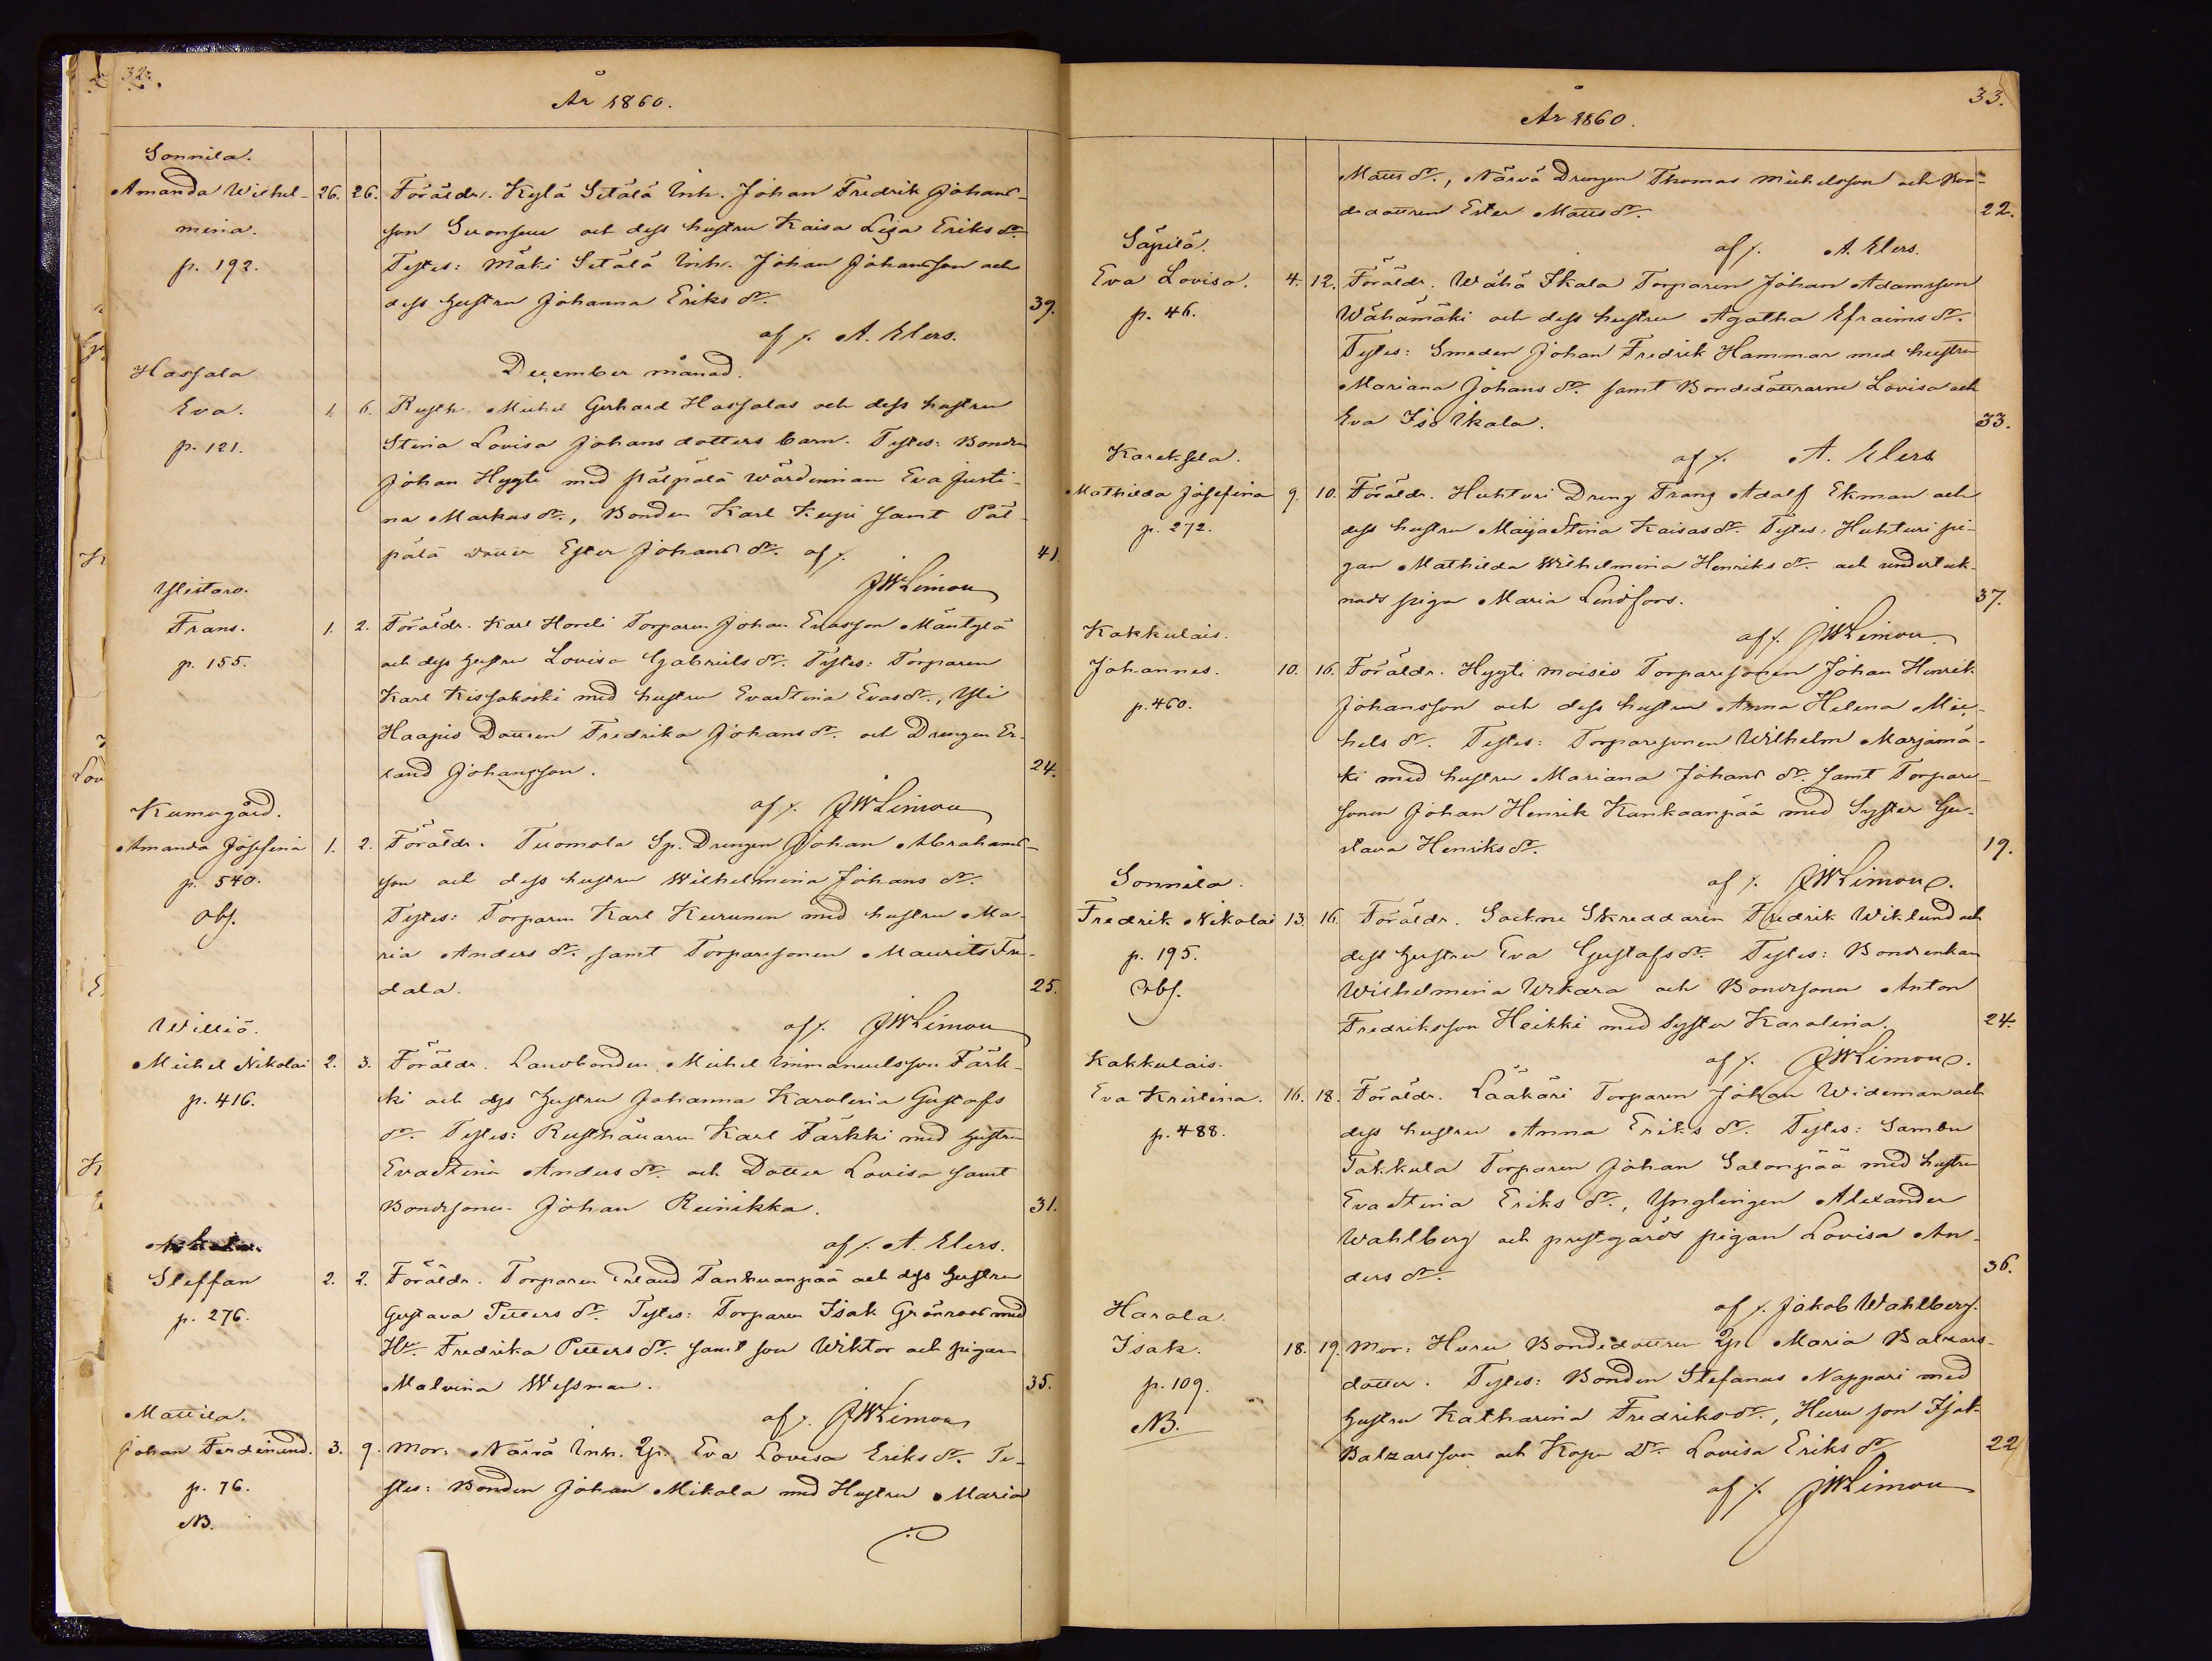 32.
År 1860.
Sonnila.
Amanda Wilhel- 26. 26. Föräldr. Kylä Setälä Inh. Johan Fredrik Johans-
mina. son och dess hustru Kaisa Lisa Eriks dr.
p. 192. Testes: Mäki Setälä Inh. Johan Johansson och
dess hustru Johanna Eriks dr. 39.
af /. A. Elers.
December månad.
Hassala
Eva. 1. 6. Rusth. Michel Gerhard Hassalas och dess hustru
p. 121. Stina Lovisa Johans dotters barn. Testes: Bonden
Johan Hygti med Pälpälä wärdinnan Eva Justi-
na Markus dr., Bonden Karl Keipi samt Päl-
pälä dotter Ester Johans dr. af /. 41.
JWLimon
Ylistaro.
Frans. 1. 2. Föräldr. Karl Horeli Torparen Johan Evasson Mäntylä
p. 155. och dess hustru Lovisa Gabriels dr. Testes: Torparen
Karl Kissakoski med hustru Evastina Evas dr., Yli
Haapio Dottren Fredrika Johans dr. och Drengen Er-
land Johansson. 24.
af /. JWLimon
Kumogård.
Amanda Josefina 1. 2. Föräldr. Tuomola Sp. Drengen Johan Abrahams-
p. 540. son och dess hustru Wilhelmina Johans dr.
obs. Testes: Torparen Karl Keerunen med hustru Ma-
ria Anders dr. samt Torparesonen Maurits
dala. 25.
af /. JWLimon
Williö.
Michel Nikolai 2. 3. Föräldr. Landbonden Michel Immanuelsson Färk-
p. 416. ki och dess Hustru Johanna Karolina Gustafs
dr. Testes: Rusthållaren Karl Färkki med hustru
Evastina Anders dr. och Dotter Lovisa samt
Bondsonen Johan Reinikka. 31.
af /. A. Elers.
Steffan 2. 2. Föräldr. Torparen Erland Tanhuanpää och dess hustru
p. 276. Gustava Petters dr. Testes: Torparen Isak Grönroos med
Hu. Fredrika Petters dr. samt son Wiktor och pigan
Malvina Wessman. 35.
af /. JWLimon
Mattila.
Johan Ferdinand. 3. 9. Mor: Närvä Inh. Qp. Eva Lovisa Eriks dr. Te-
p. 76. stes: Bonden Johan Mikola med Hustru Maria
NB.
33.
År 1860.
Matts dr., Närvä Drengen Thomas Michelsson och Bon-
dedottren Ester Matts dr. 22.
af /. A. Elers.
Säpilä.
Eva Lovisa. 4. 12. Föräldr. Wähä Ikala Torparen Johan Adamsson
p. 46. Wähämäki och dess hustru Agatha Efraims dr.
Testes: Smeden Johan Fredrik Hammar med hustru
Mariana Johans dr. samt Bondedöttrarne Lovisa och
Eva Iso Ikala. 33.
af /. A. Elers
Kareksela.
Mathilda Josefina 9. 10. Föräldr. Huhturi Dreng Frans Adolf Ekman och
p. 272. dess hustru Maijastina Kaisas dr. Testes: Huhturi pi-
gan Mathilda Wilhelmina Henriks dr. och underteck-
nads piga Maria Lindfors. 37.
af /. JWLimon
Kakkulais.
Johannes. 10. 16. Föräldr. Hygti moisio Torparesonen Johan Henrik
p. 460. Johansson och dess hustru Anna Helena Mic-
hels dr. Testes: Torparesonen Wilhelm Marjamä-
ki med hustru Mariana Johans dr. samt Torpare-
sonen Johan Henrik Kankaanpää med Syster Gu-
stava Henriks dr. 19.
af /. JWLimon.
Sonnila.
Fredrik Nikolai 13. 16. Föräldr. Sockne Skreddaren Fredrik Wiklund och
p. 195. dess hustru Eva Gustafs dr. Testes: Bondenkan
Obs. Wilhelmina Urkara och Bondsonen Anton
Fredriksson Heikki med Syster Karolina. 24.
af /. JWLimon.
Kakkulais.
Eva Kristina. 16. 18. Föräldr. Lääkäri Torparen Johan Wideman och
p. 488. dess hustru Anna Eriks dr. Testes: Sambu
Takkula Torparen Johan Salonpää med hustru
Evastina Eriks dr., Ynglingen Alexander
Wahlberg och prestgårds pigan Lovisa An-
ders dr. 36.
af /. Jakob Wahlberg.
Harola.
Isak. 18. 19. Mor: Huru Bondedottren Qp. Maria Balzars-
p. 109. dotter. Testes: Bonden Stefanus Nappari med
NB. hustru Katharina Fredriks dr., Huru son Isak
Balzarsson och Kopu Dr. Lovisa Eriks dr. 22
af /. JWLimon